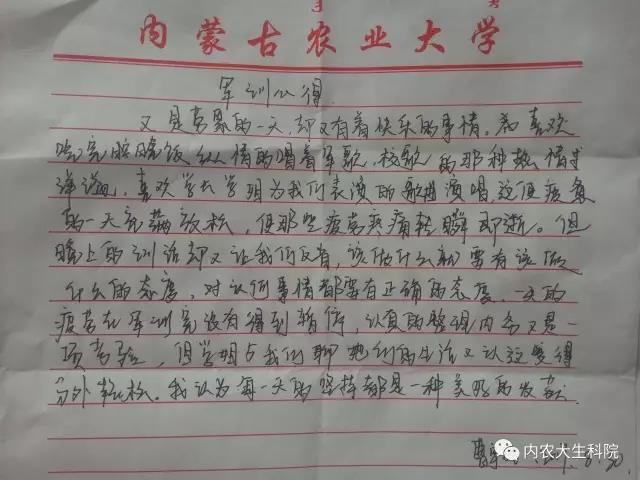 内蒙古农业大学
军训心得
又是劳累的一天,却又有着快乐的事情。我喜欢
吃完晚饭纵情的唱着军歌,校歌的那种热情
洋溢,喜欢学长学姐为我们表演的歌曲演唱,这使疲惫
的一天充满放松,使那些疲劳疼痛转瞬即逝。但
晚上的训话却又让我们反省,该做什么就要有该做
什么的态度,对认何事情都要有正确的态度,一天的
疲劳在军训完没有得到暂停,认真的整理内务又是一
项考验,但学姐与我们聊她们的生活又认这变得
分外轻松。我认为每一天的坚持都是一种美好的贡献
内农大生科院